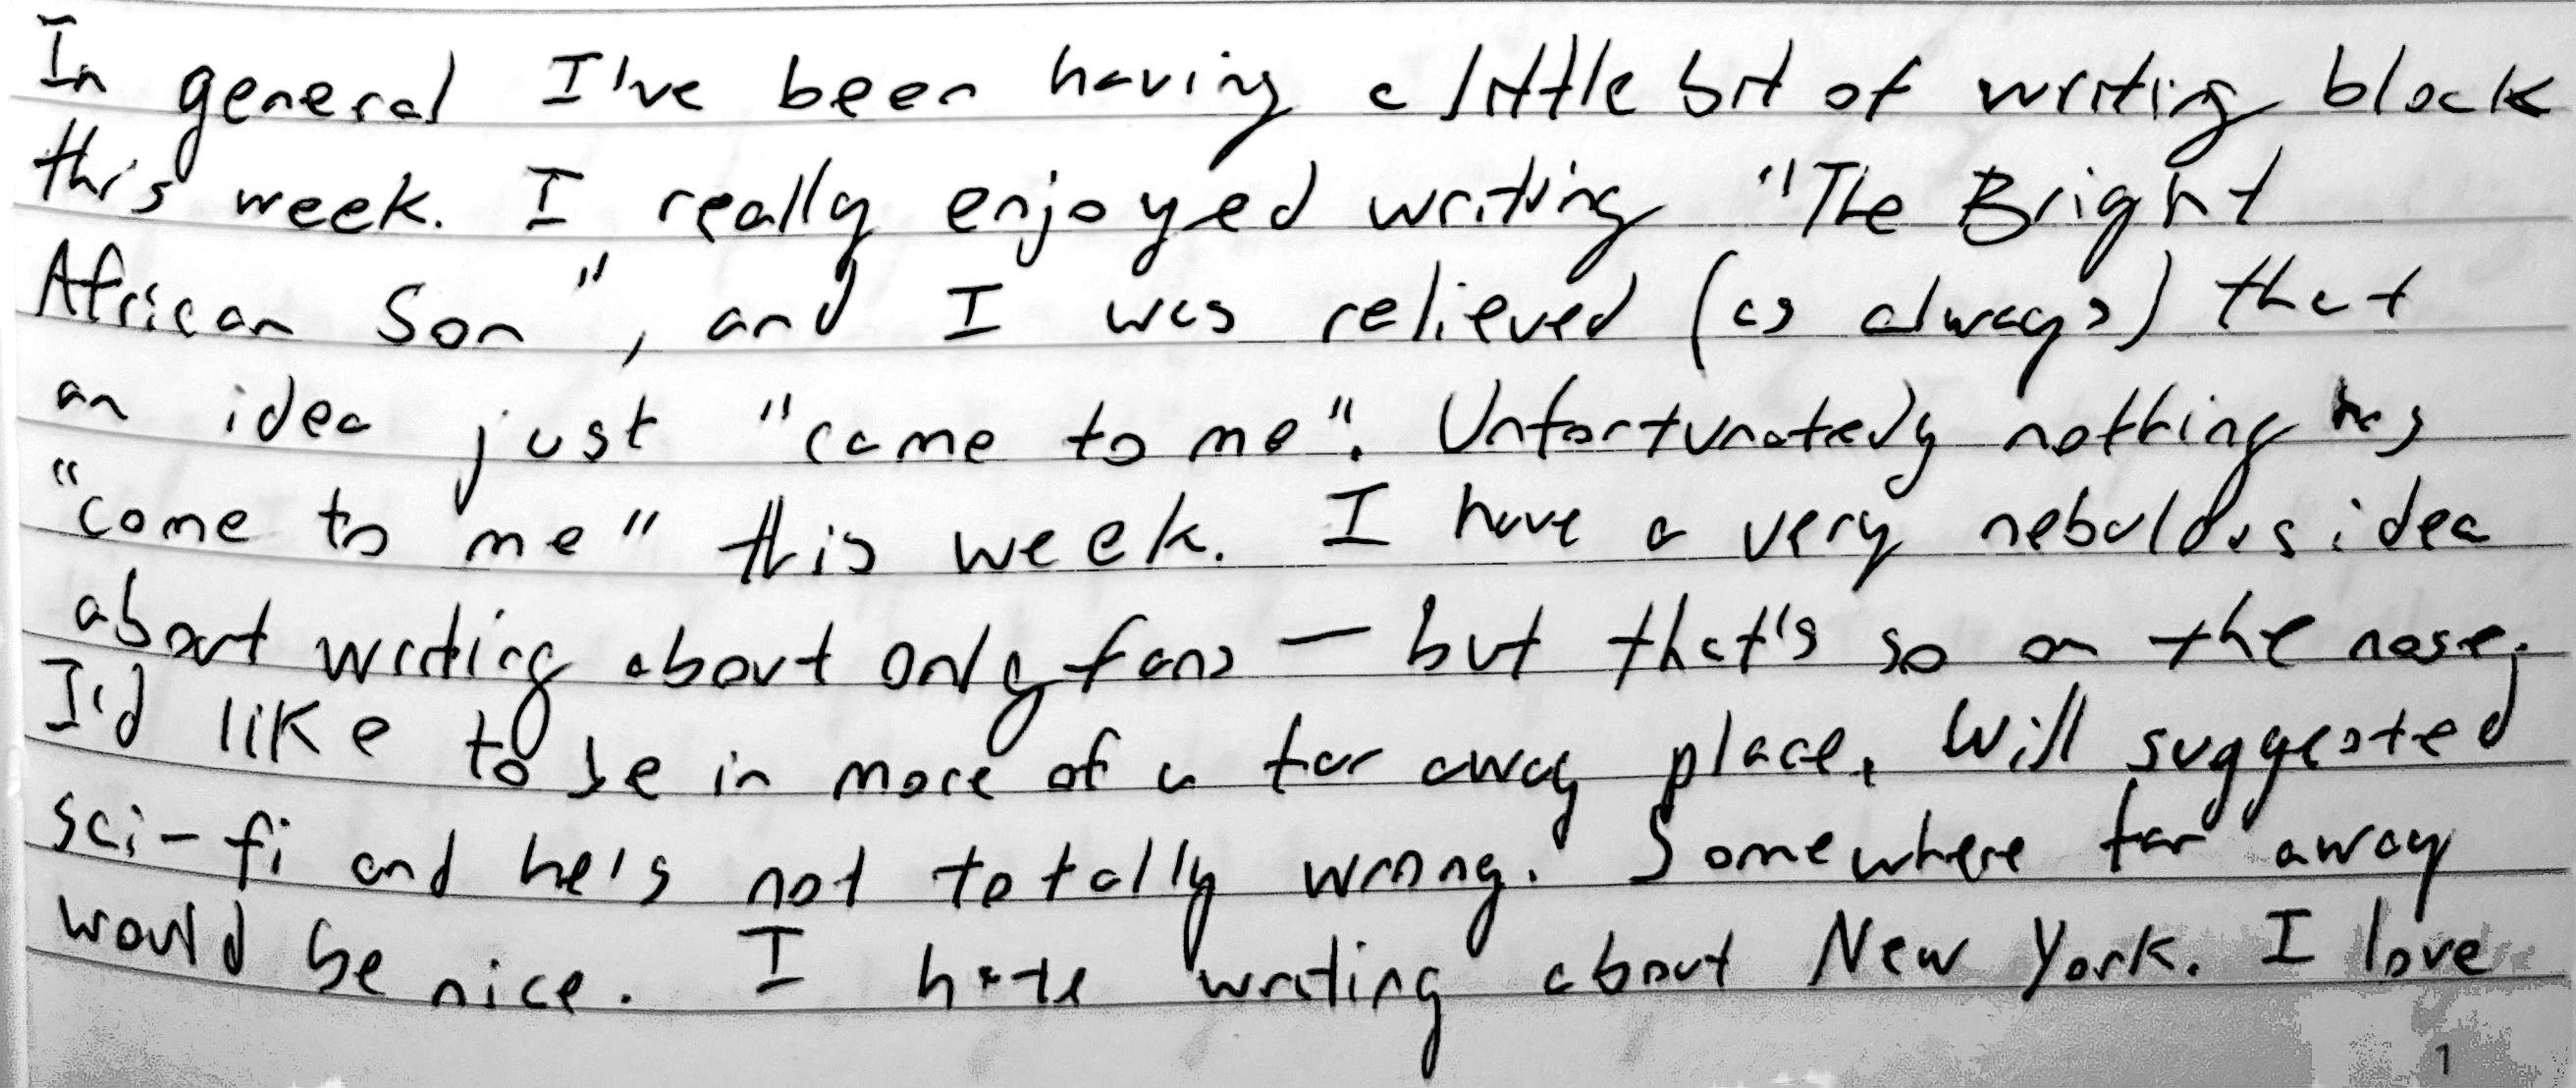 In general I've been having a little bit of writing block
this week. I really enjoyed writing "The Bright
African Son", and I was relieved (as always) that
an idea just "came to me". Unfortunately nothing has
"come to me" this week. I have a very nebulous idea
about writing about only fans — but that's so on the nose.
I'd like to be in more of a far away place. Will suggested
sci-fi and he's not totally wrong. Somewhere far away
would be nice. I hate writing about New York. I love
1